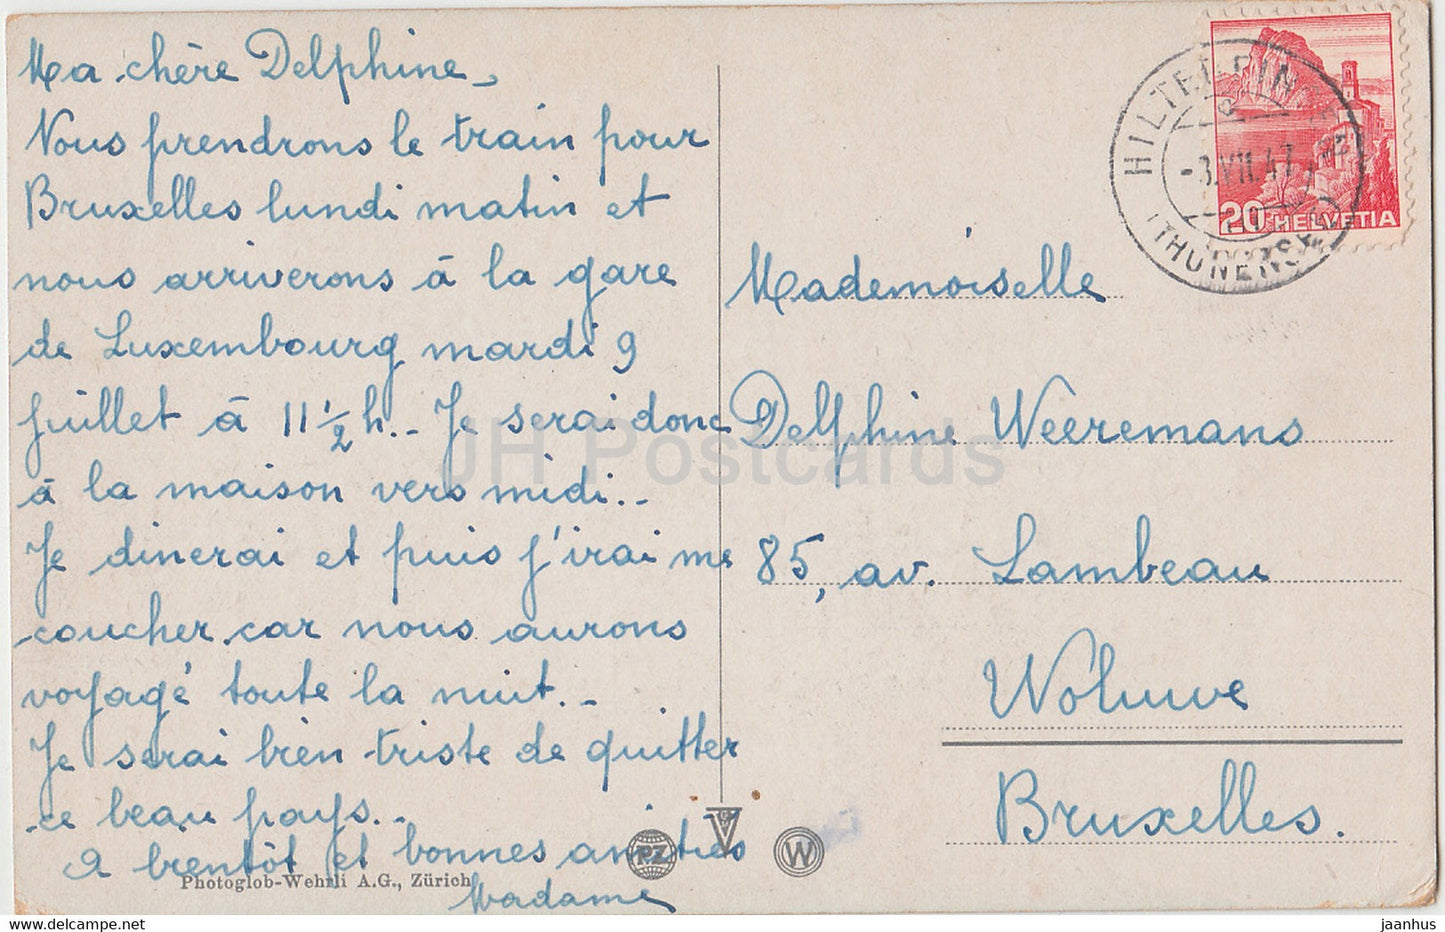 Ma chère Delphine,
Nous prendrons le train pour
Bruxelles lundi matin et
nous arriverons à la gare
de Luxembourg mardi 9
juillet à 11 1/2 h.- Je serai donc
à la maison vers midi.-
Je dinerai et puis j'irai me
coucher car nous aurons
voyagé toute la nuit.-
Je serai bien triste de quitter
ce beau pays.-
A bientôt et bonnes amitiés
Madame
Photoglob-Wehrli A.G., Zürich
PZ
W
HILTERFIN
-8.VII.47
(THUNERSEE)
20 HELVETIA
Mademoiselle
Delphine Weeremans
85, av. Lambeau
Woluwe
Bruxelles.
JH Postcards
https://jhpostcards.com
jaanhus